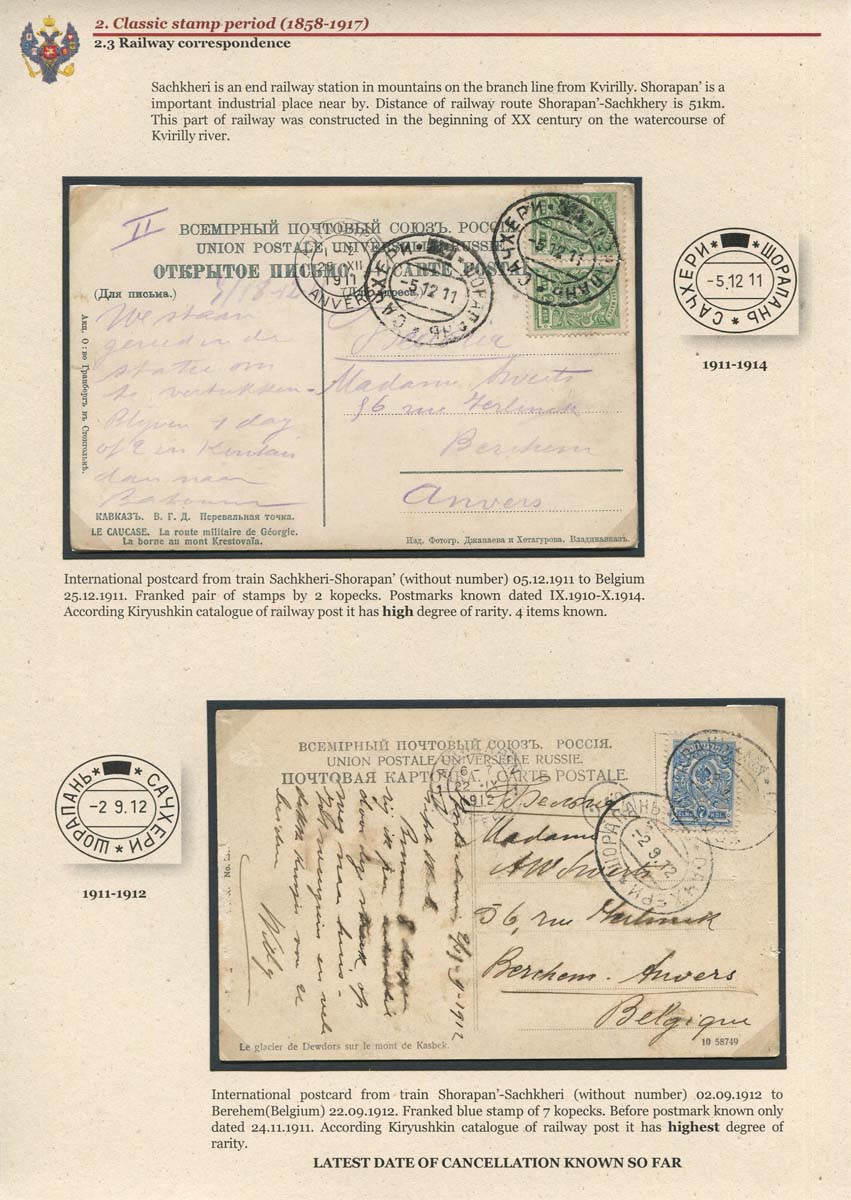 2. Classic stamp period (1858-1917)
2.3 Railway correspondence
Sachkheri is an end railway station in mountains on the branch line from Kvirilly. Shorapan' is a
important industrial place near by. Distance of railway route Shorapan'-Sachkhery is 51km.
This part of railway was constructed in the beginning of XX century on the watercourse of
Kvirilly river.
II
ВСЕМІРНЫЙ ПОЧТОВЫЙ СОЮЗЪ. РОССІЯ
UNION POSTALE UNIVERSELLE RUSSIE
ОТКРЫТОЕ ПИСЬМО. CARTE POSTALE
(Для письма.)
(Для адреса.)
1911
ANVERS
САЧХЕРИ
-5.12 11
ШОРАПАНЬ
САЧХЕРИ
-5.12 11
We staan
gereed in de
statie om
te vertrekken
Blijven 1 dag
of 2 in Koutais
dan naar
Batoum
Madame Swerts
56 rue
Berchem
Anvers
Акц. О-во Гранбергъ въ Стокгольмѣ.
КАВКАЗЪ. В. Г. Д. Перевальная точка.
LE CAUCASE. La route militaire de Géorgie.
La borne au mont Krestovaïa.
Изд. Фотогр. Джанаева и Хетагурова. Владикавказъ.
САЧХЕРИ ШОРАПАНЬ
-5.12 11
1911-1914
International postcard from train Sachkheri-Shorapan' (without number) 05.12.1911 to Belgium
25.12.1911. Franked pair of stamps by 2 kopecks. Postmarks known dated IX.1910-X.1914.
According Kiryushkin catalogue of railway post it has high degree of rarity. 4 items known.
ШОРАПАНЬ САЧХЕРИ
-2 9.12
1911-1912
ВСЕМІРНЫЙ ПОЧТОВЫЙ СОЮЗЪ. РОССІЯ.
UNION POSTALE UNIVERSELLE RUSSIE.
ПОЧТОВАЯ КАРТОЧКА. CARTE POSTALE.
1912
7
ШОРАПАНЬ САЧХЕРИ
-2.9.12
Madame
A W Swerts
56, rue
Berchem-Anvers
Belgique
Willy
Le glacier de Dewdors sur le mont de Kasbek.
10 58749
International postcard from train Shorapan'-Sachkheri (without number) 02.09.1912 to
Berehem(Belgium) 22.09.1912. Franked blue stamp of 7 kopecks. Before postmark known only
dated 24.11.1911. According Kiryushkin catalogue of railway post it has highest degree of
rarity.
LATEST DATE OF CANCELLATION KNOWN SO FAR